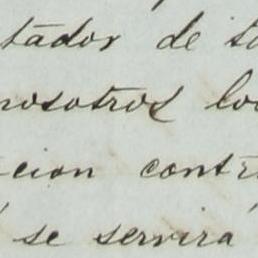 tador de to
nosotros lo
cion contr
se servira